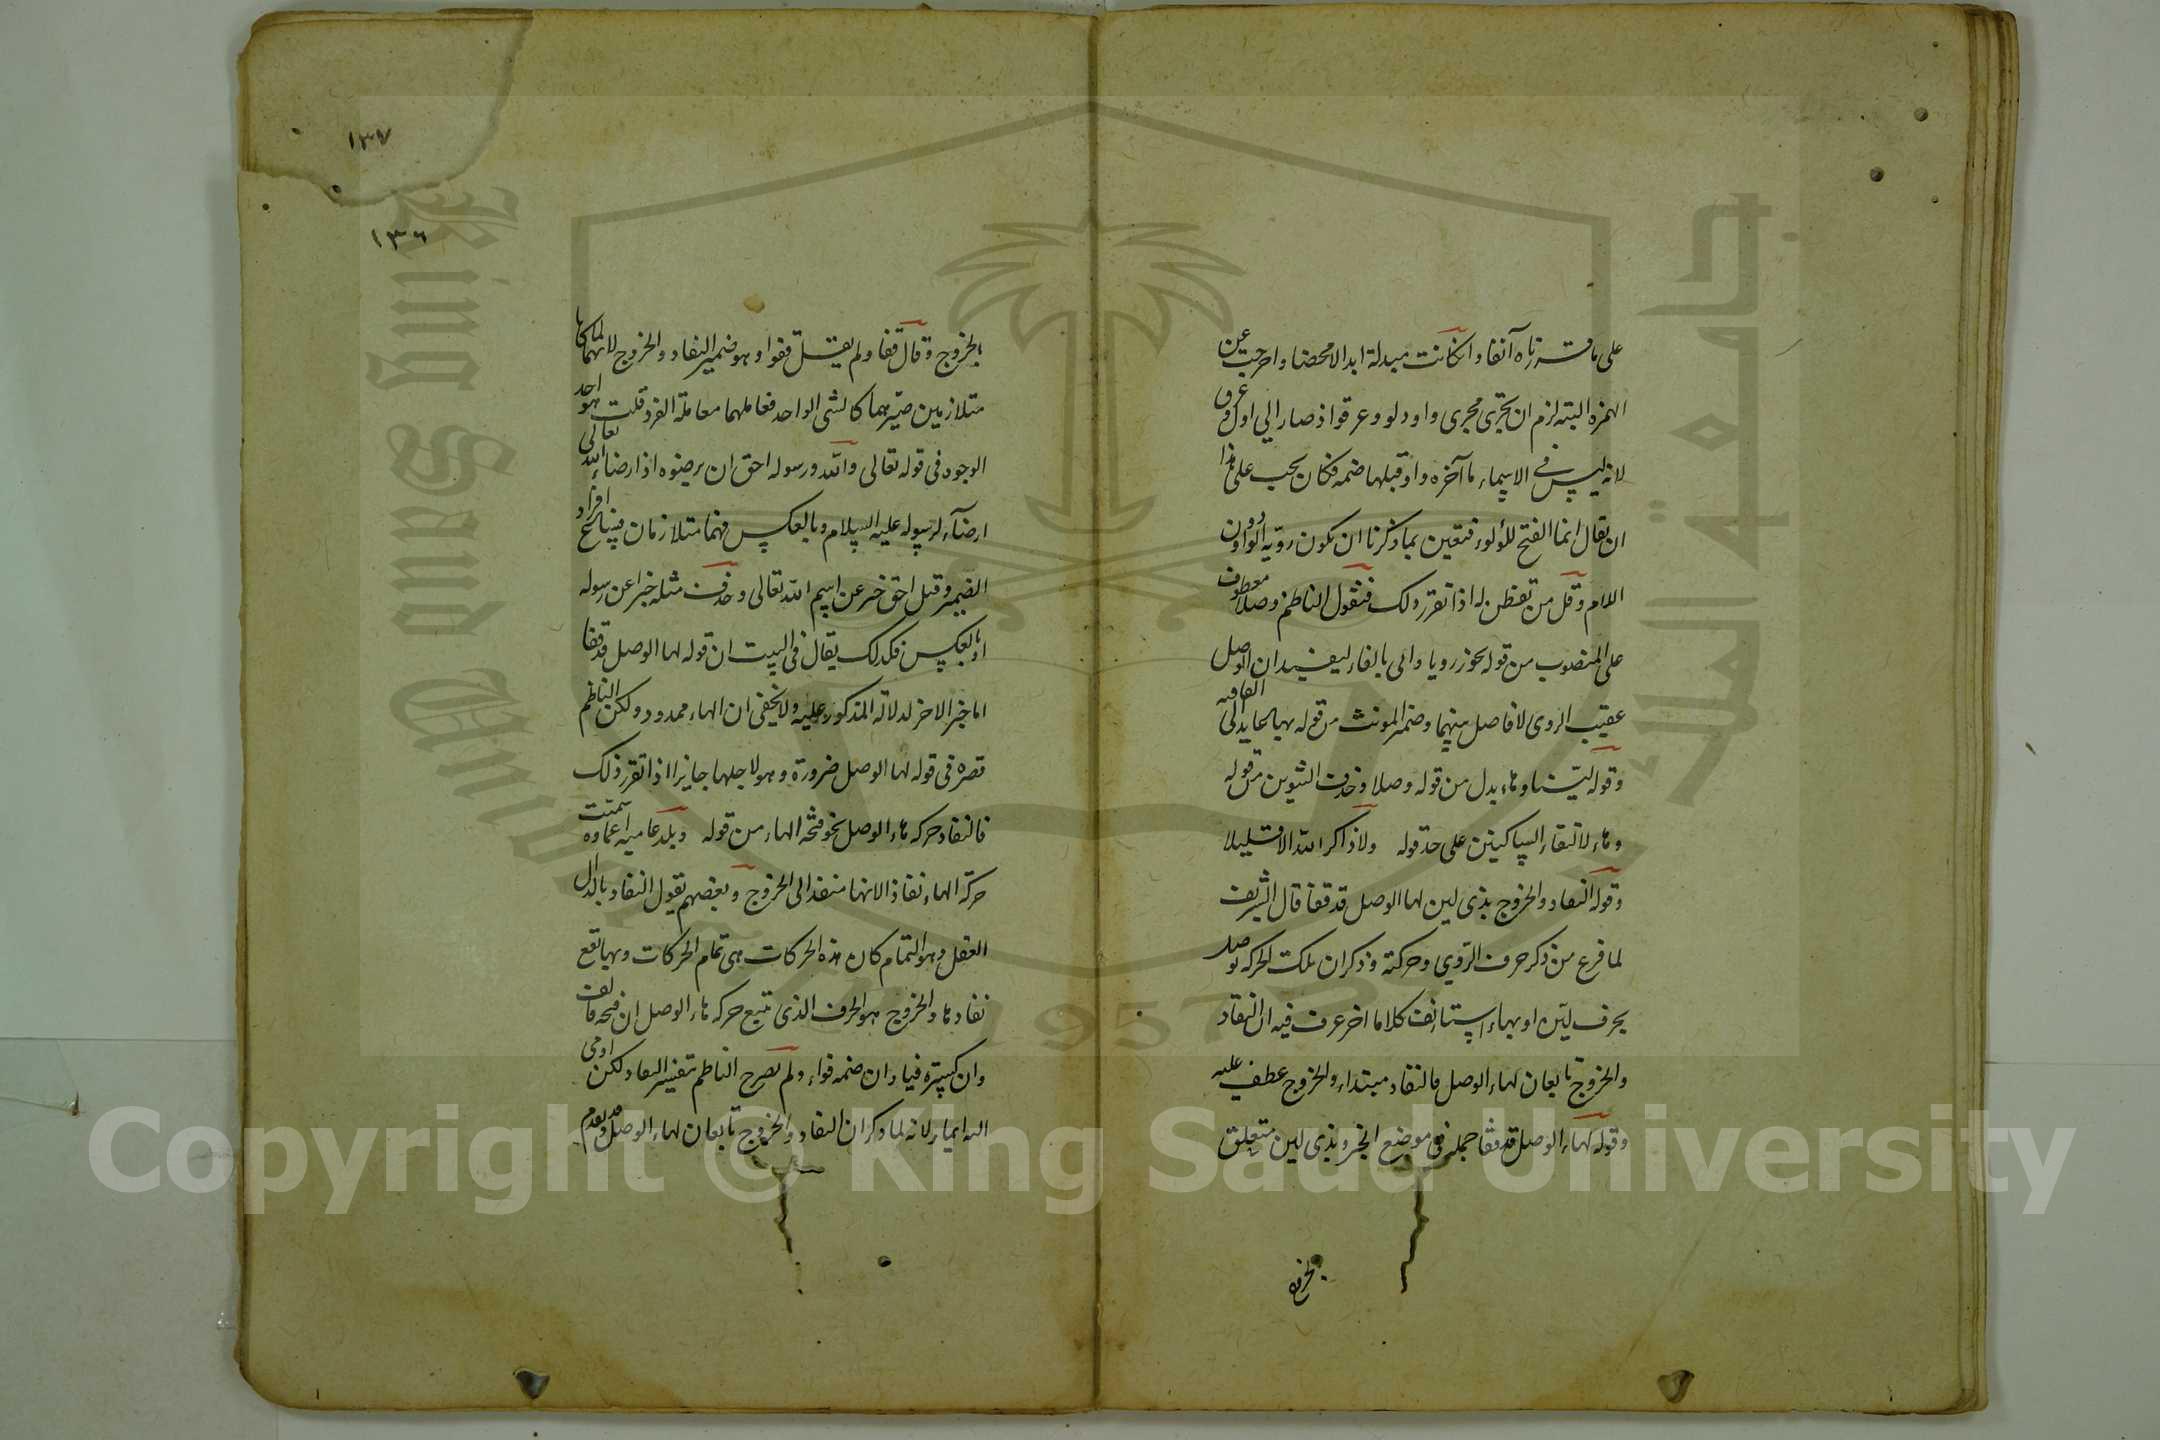 على ما قررناه آنفا وان كانت مبدلة ابدالا محضا واخرجت عين
الهمزة البتة لزم ان تجرى مجرى واو دلو وعرقو اذ صار الى اول وعرق
لانه ليس في الاسماء ما آخره واو قبلها ضمة فكان يجب على هذا
ان يقال انما الفتح للؤلوء فتعين بما ذكرنا ان يكون رويه الواو دون
اللام وقل من تفطن له اذا تقرر ذلك فنقول الناظم وصلا معطوف
على المنصوب من قوله تحوز رويا واتى بالفاء ليفيد ان الوصل
عقيب الروى لا فاصل بينهما وضمير المونث من قوله بها عايد الى القافيه
وقوله لينا وهاء بدل من قوله وصلا وحذف التنوين من قوله
وهاء لالتقاء الساكنين على حد قوله ولا ذاكر الله الا قليلا
وقوله النفاد والخروج بذى لين لها الوصل قد قفا قال الشريف
لما فرغ من ذكر حرف الروي وحركته وذكر ان تلك الحركة توصل
بحرف لين او بهاء استانف كلاما اخر عرف فيه ان النفاد
والخروج تابعان لهاء الوصل فالنفاد مبتداء والخروج عطف عليه
وقوله لهاء الوصل قد قفا جملة في موضع الخبر وبذى لين متعلق
بالخروج
١٣٧
١٣٦
بالخروج وقال قفا ولم يقل قفوا وهو ضمير النفاد والخروج لانهما لما كانا
متلازمين صيرهما كالشى الواحد فعاملهما معاملة المفرد قلت هو احد
الوجوه في قوله تعالى والله ورسوله احق ان يرضوه اذ ارضاء الله تعالى
ارضآء لرسوله عليه السلام وبالعكس فهما متلازمان فينبا صح افراد
الضمير وقيل احق خبر عن اسم الله تعالى وحذف مثله خبرا عن رسوله
او بالعكس فكذلك يقال في البيت ان قوله لها الوصل قد قفا
اما خبر الاخر لدلالة المذكور عليه ولا يخفى ان الهاء ممدود ولكن الناظم
قصره في قوله لها الوصل ضرورة وهو لاجلها جايز اذا تقرر ذلك
فالنفاد حركة هاء الوصل نحو فتحة الهاء من قوله وبلد عامية اعماوه سميت
حركة الهاء نفاذ لانها منفذ الى الخروج وبعضهم يقول النفاد بالدال
الغفل وهو التمام كان هذه الحركات هى تمام الحركات وبها تقع
نفادها والخروج هو الحرف الذى يتبع حركة هاء الوصل ان فتحة فالف
وان كسرة فياء وان ضمة فواو ولم يصرح الناظم بتفسير النفاد لكن اومى
اليه ايماء لانه لما ذكر ان النفاد والخروج تابعان لهاء الوصل وقد تقدم
Copyright © King Saud University
King Saud University
جامعة الملك سعود
1957